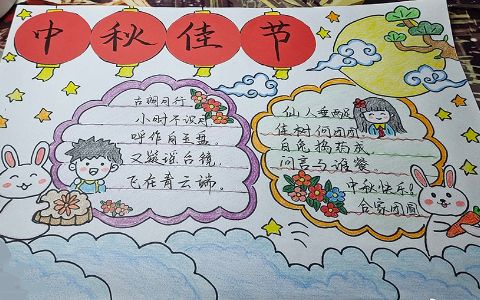 中秋佳节
古朗月行
小时不识月
呼作白玉盘
又疑瑶台镜，
飞在青云端。
仙人垂两足
桂树何团团
白兔捣药成
问言与谁餐
中秋快乐！
合家团圆